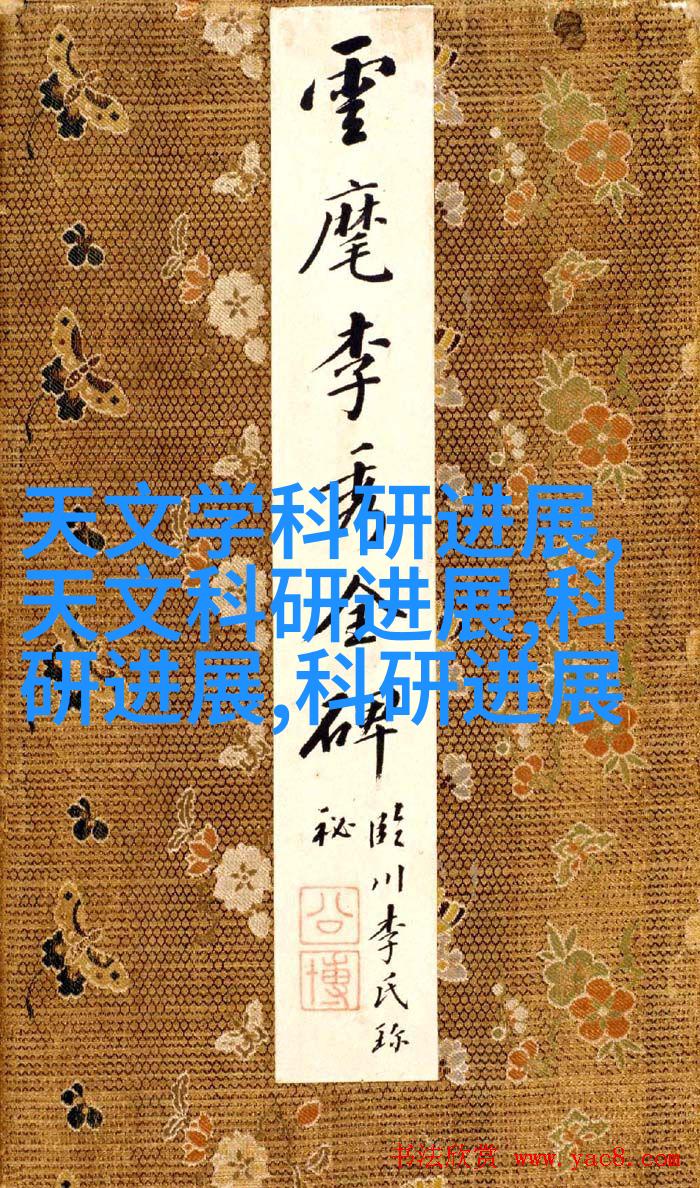 雲麾李秀全碑
臨川李氏珎
秘
公博
天文学科研进展,
天文科研进展,科
研进展,科研进展
书法欣赏 www.yac8.com